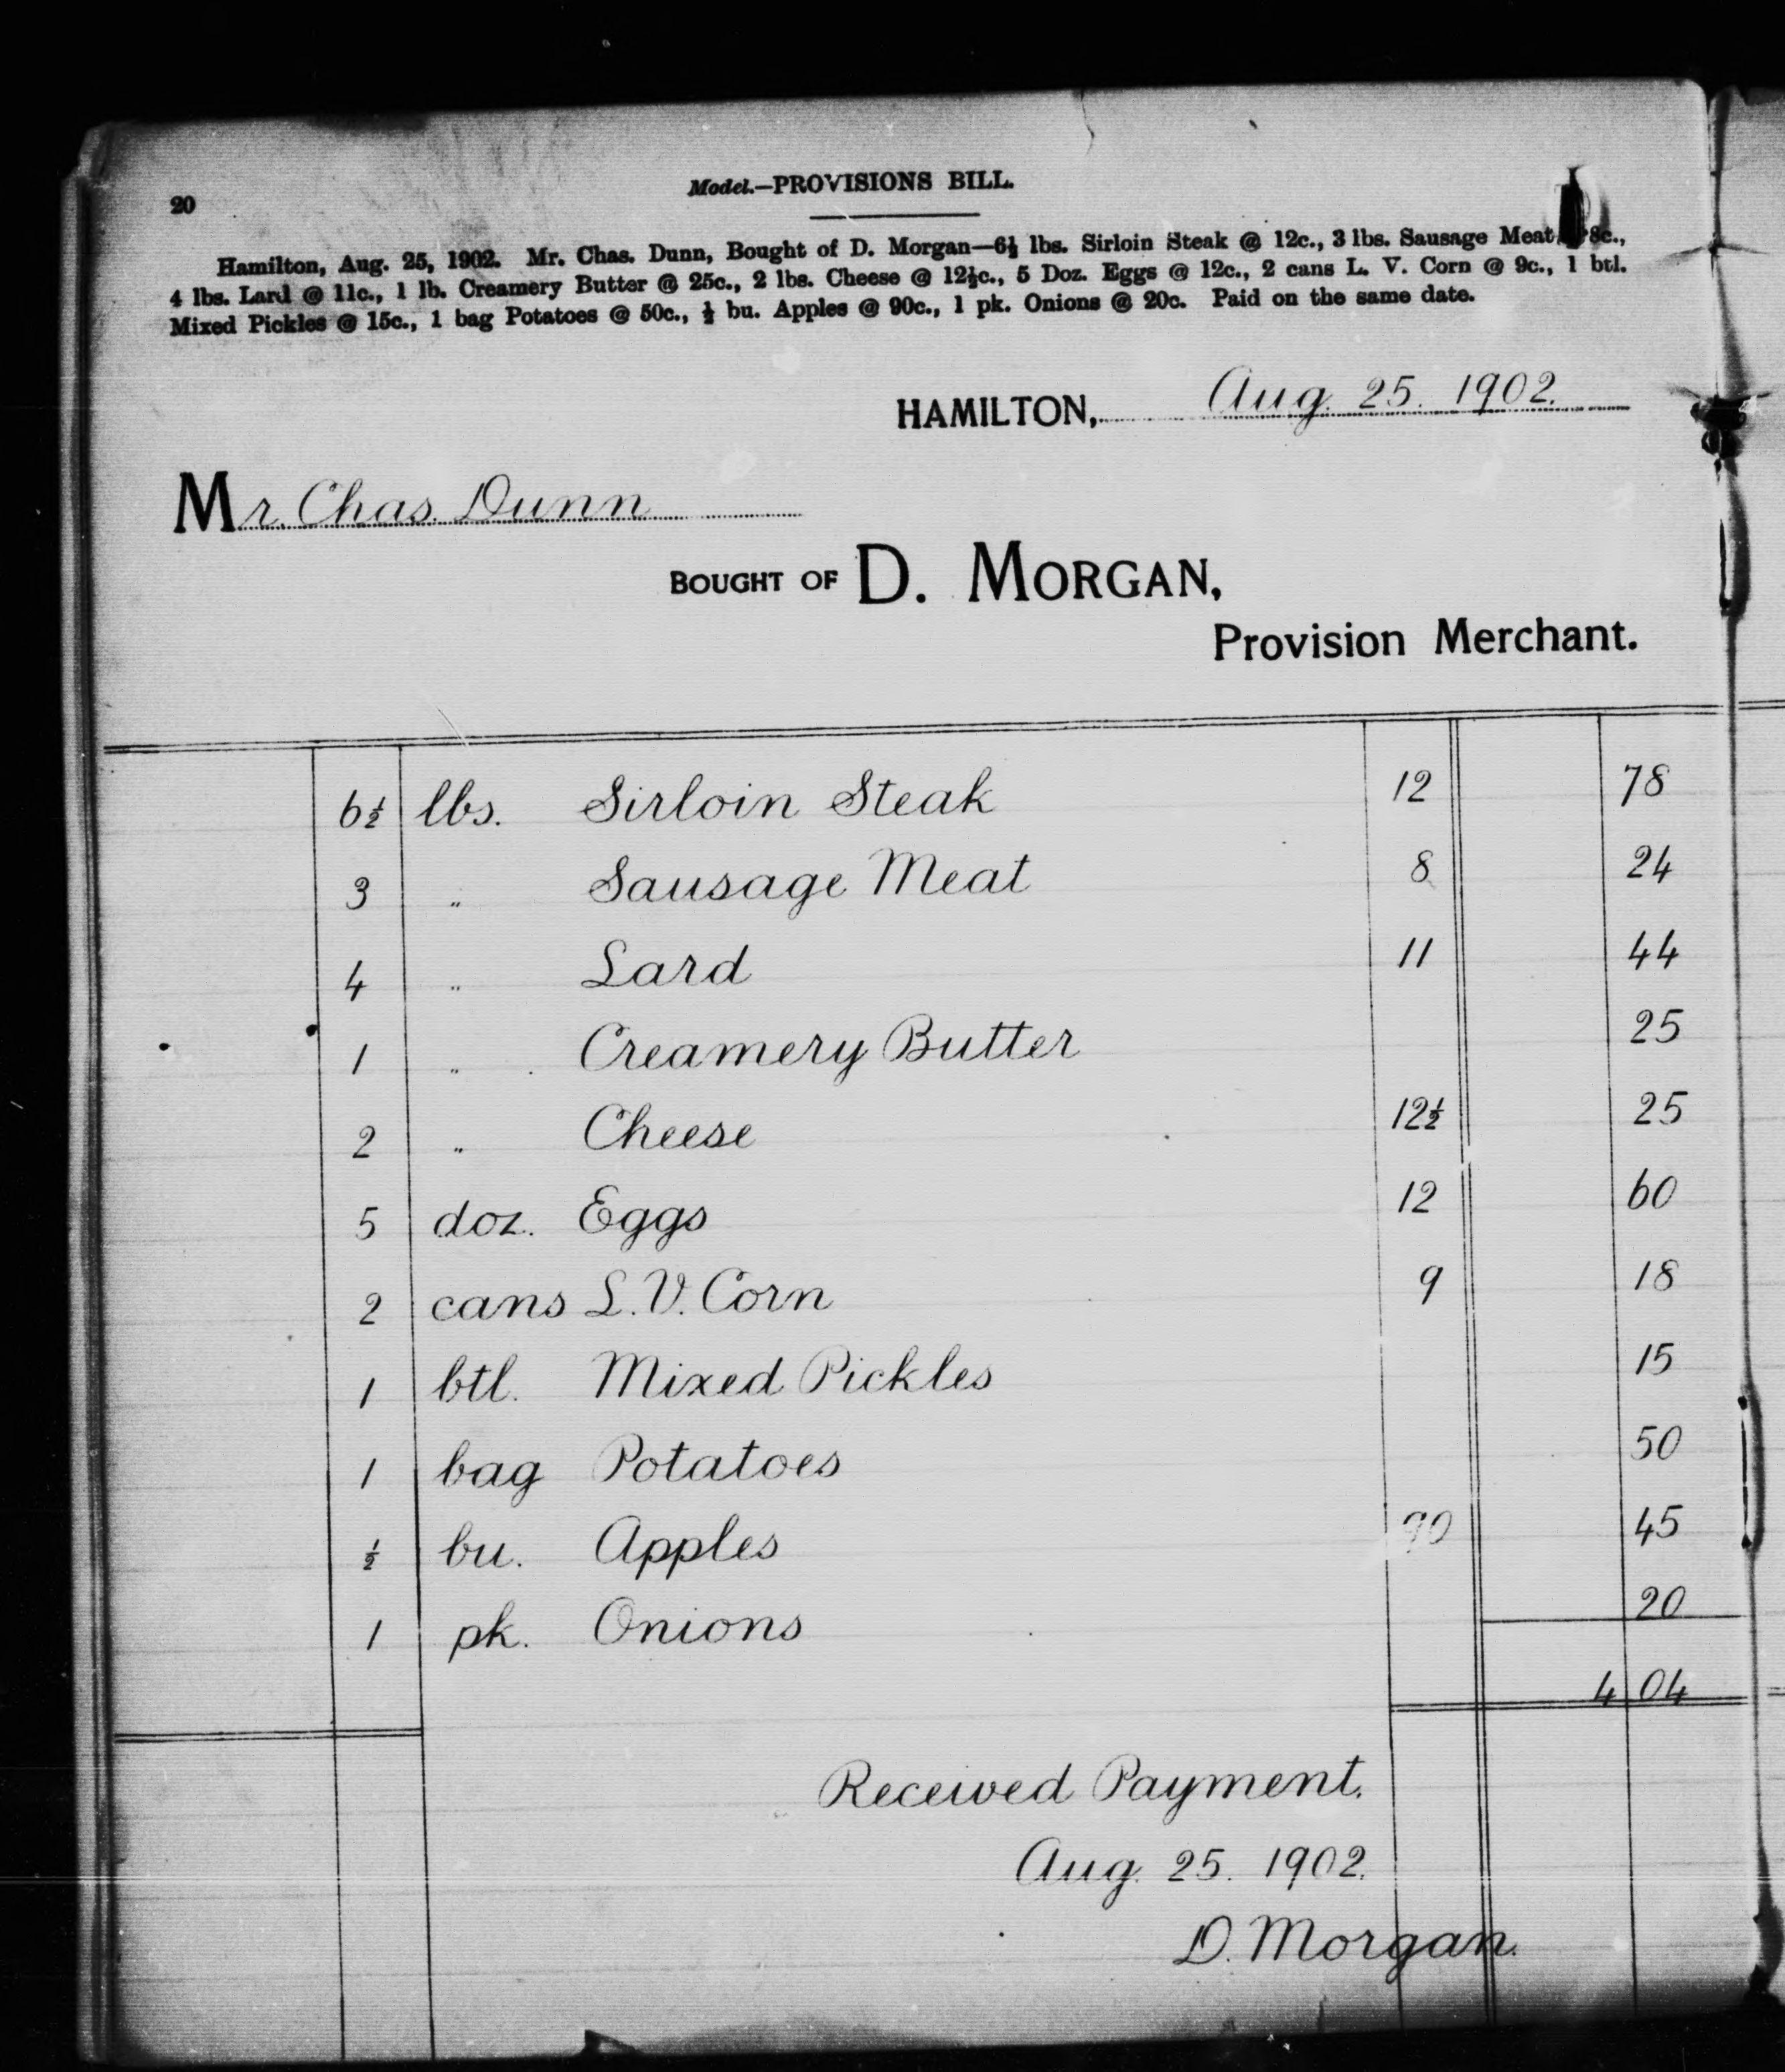 20
Model.—PROVISIONS BILL.
Hamilton, Aug. 25, 1902. Mr. Chas. Dunn, Bought of D. Morgan—6½ lbs. Sirloin Steak @ 12c., 3 lbs. Sausage Meat 8c.,
4 lbs. Lard @ 11c., 1 lb. Creamery Butter @ 25c., 2 lbs. Cheese @ 12½c., 5 Doz. Eggs @ 12c., 2 cans L. V. Corn @ 9c., 1 btl.
Mixed Pickles @ 15c., 1 bag Potatoes @ 50c., ½ bu. Apples @ 90c., 1 pk. Onions @ 20c. Paid on the same date.
HAMILTON, Aug. 25. 1902.
Mr. Chas. Dunn
BOUGHT OF D. MORGAN,
Provision Merchant.
6½ lbs. Sirloin Steak 12 78
3 " Sausage Meat 8 24
4 " Lard 11 44
1 " Creamery Butter 25
2 " Cheese 12½ 25
5 doz. Eggs 12 60
2 cans L.V. Corn 9 18
1 btl. Mixed Pickles 15
1 bag Potatoes 50
½ bu. Apples 90 45
1 pk. Onions 20
4 04
Received Payment.
Aug. 25. 1902.
D. Morgan.